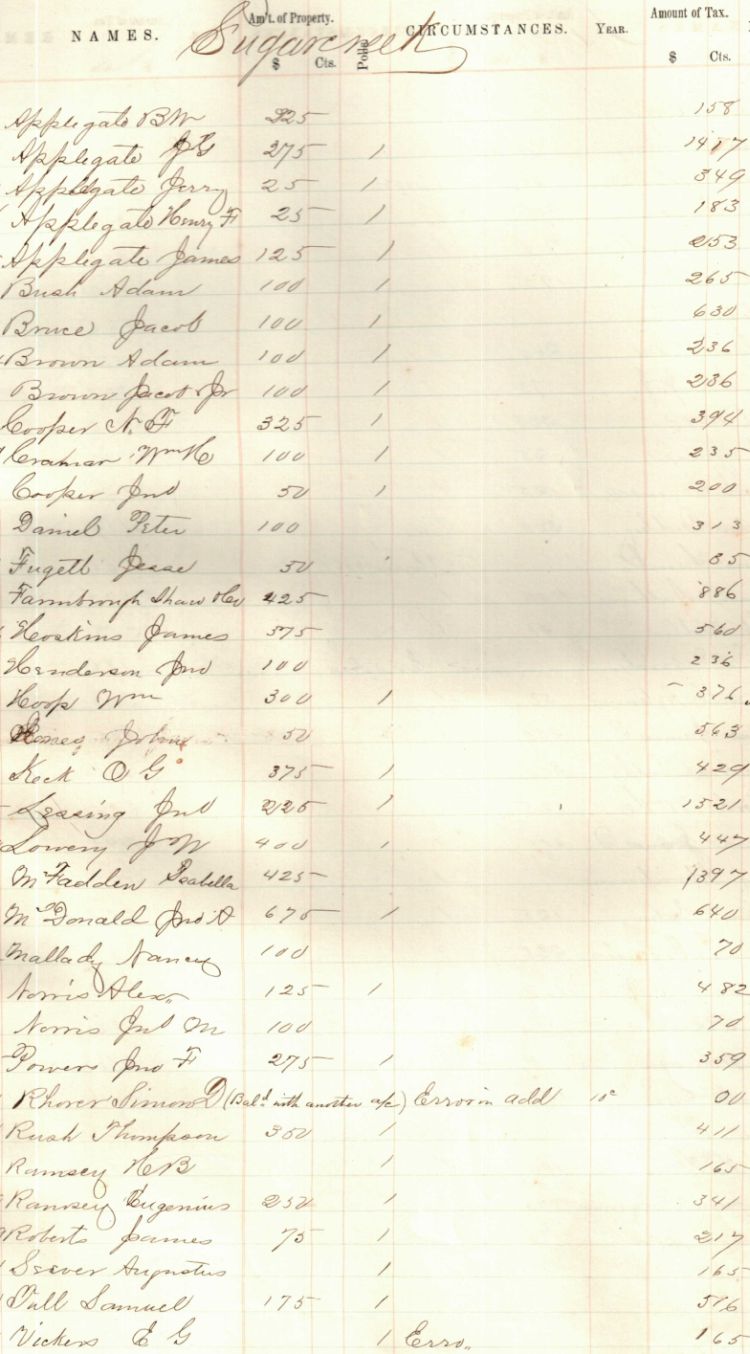 NAMES. Am't. of Property. Polls CIRCUMSTANCES. YEAR. Amount of Tax.
Sugarcreek
$ Cts. $ Cts.
Applegate B W 225 158
Applegate J G 275 1 1417
Applegate Jerry 25 1 349
Applegate Henry F 25 1 183
Applegate James 125 1 253
Bush Adam 100 1 265
Bruce Jacob 100 1 630
Brown Adam 100 1 236
Brown Jacob Jr 100 1 236
Cooper N. F 325 1 394
Wm 100 1 235
Cooper Jno 50 1 200
Daniel Peter 100 313
Fugett Jesse 50 35
Farmbrough Shaw 425 886
Hoskins James 375 560
Henderson Jno 100 236
Hoop Wm 300 1 376
John 50 563
Keck O G 375 1 429
Lessing Jno 225 1 1521
Lowery J W 400 1 447
McFadden Isabella 425 1397
McDonald Jno A 675 1 640
Mallady Nancy 100 70
Norris Alex 125 1 482
Norris Jno M 100 70
Powers Jno F 275 1 359
Rhorer Simon D (Bal'd with another a/c) Error in add 00
Rush Thompson 350 1 411
Ramsey H B 1 165
Ramsey Eugenius 250 1 341
Roberts James 75 1 217
Seever Augustus 1 165
Tull Samuel 175 1 516
Vickers E G 1 Erro,, 165